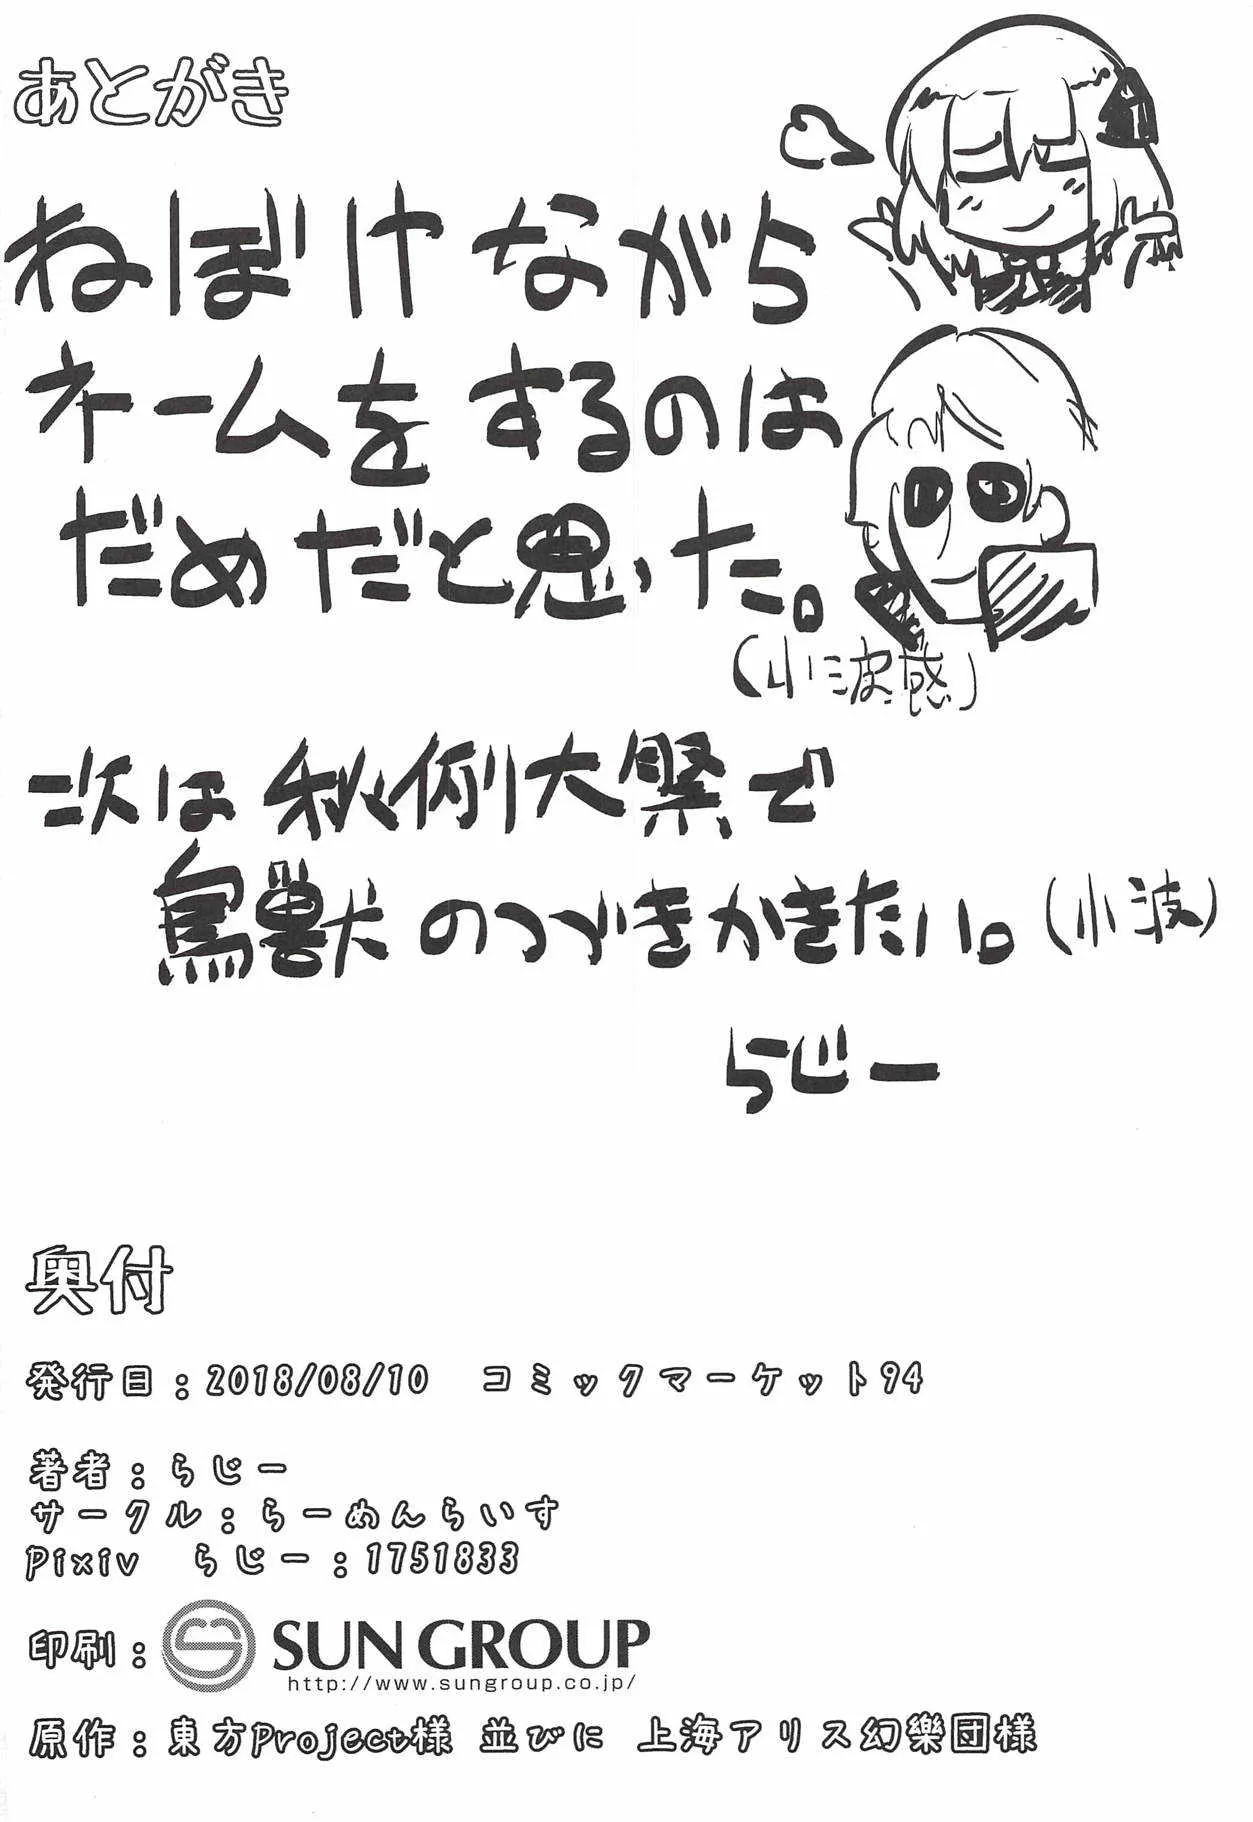 あとがき
ねぼけながら
ネームをするのは
だめだと思いった。
(小波感)
次は秋例大祭で
鳥獣のつづきかきたい。(小波)
らじー
奥付
発行日:2018/08/10 コミックマーケット94
著者:らじー
サークル:らーめんらいす
Pixiv らじー:1751833
印刷:SUN GROUP
http://www.sungroup.co.jp/
原作:東方Project様 並びに 上海アリス幻樂団様